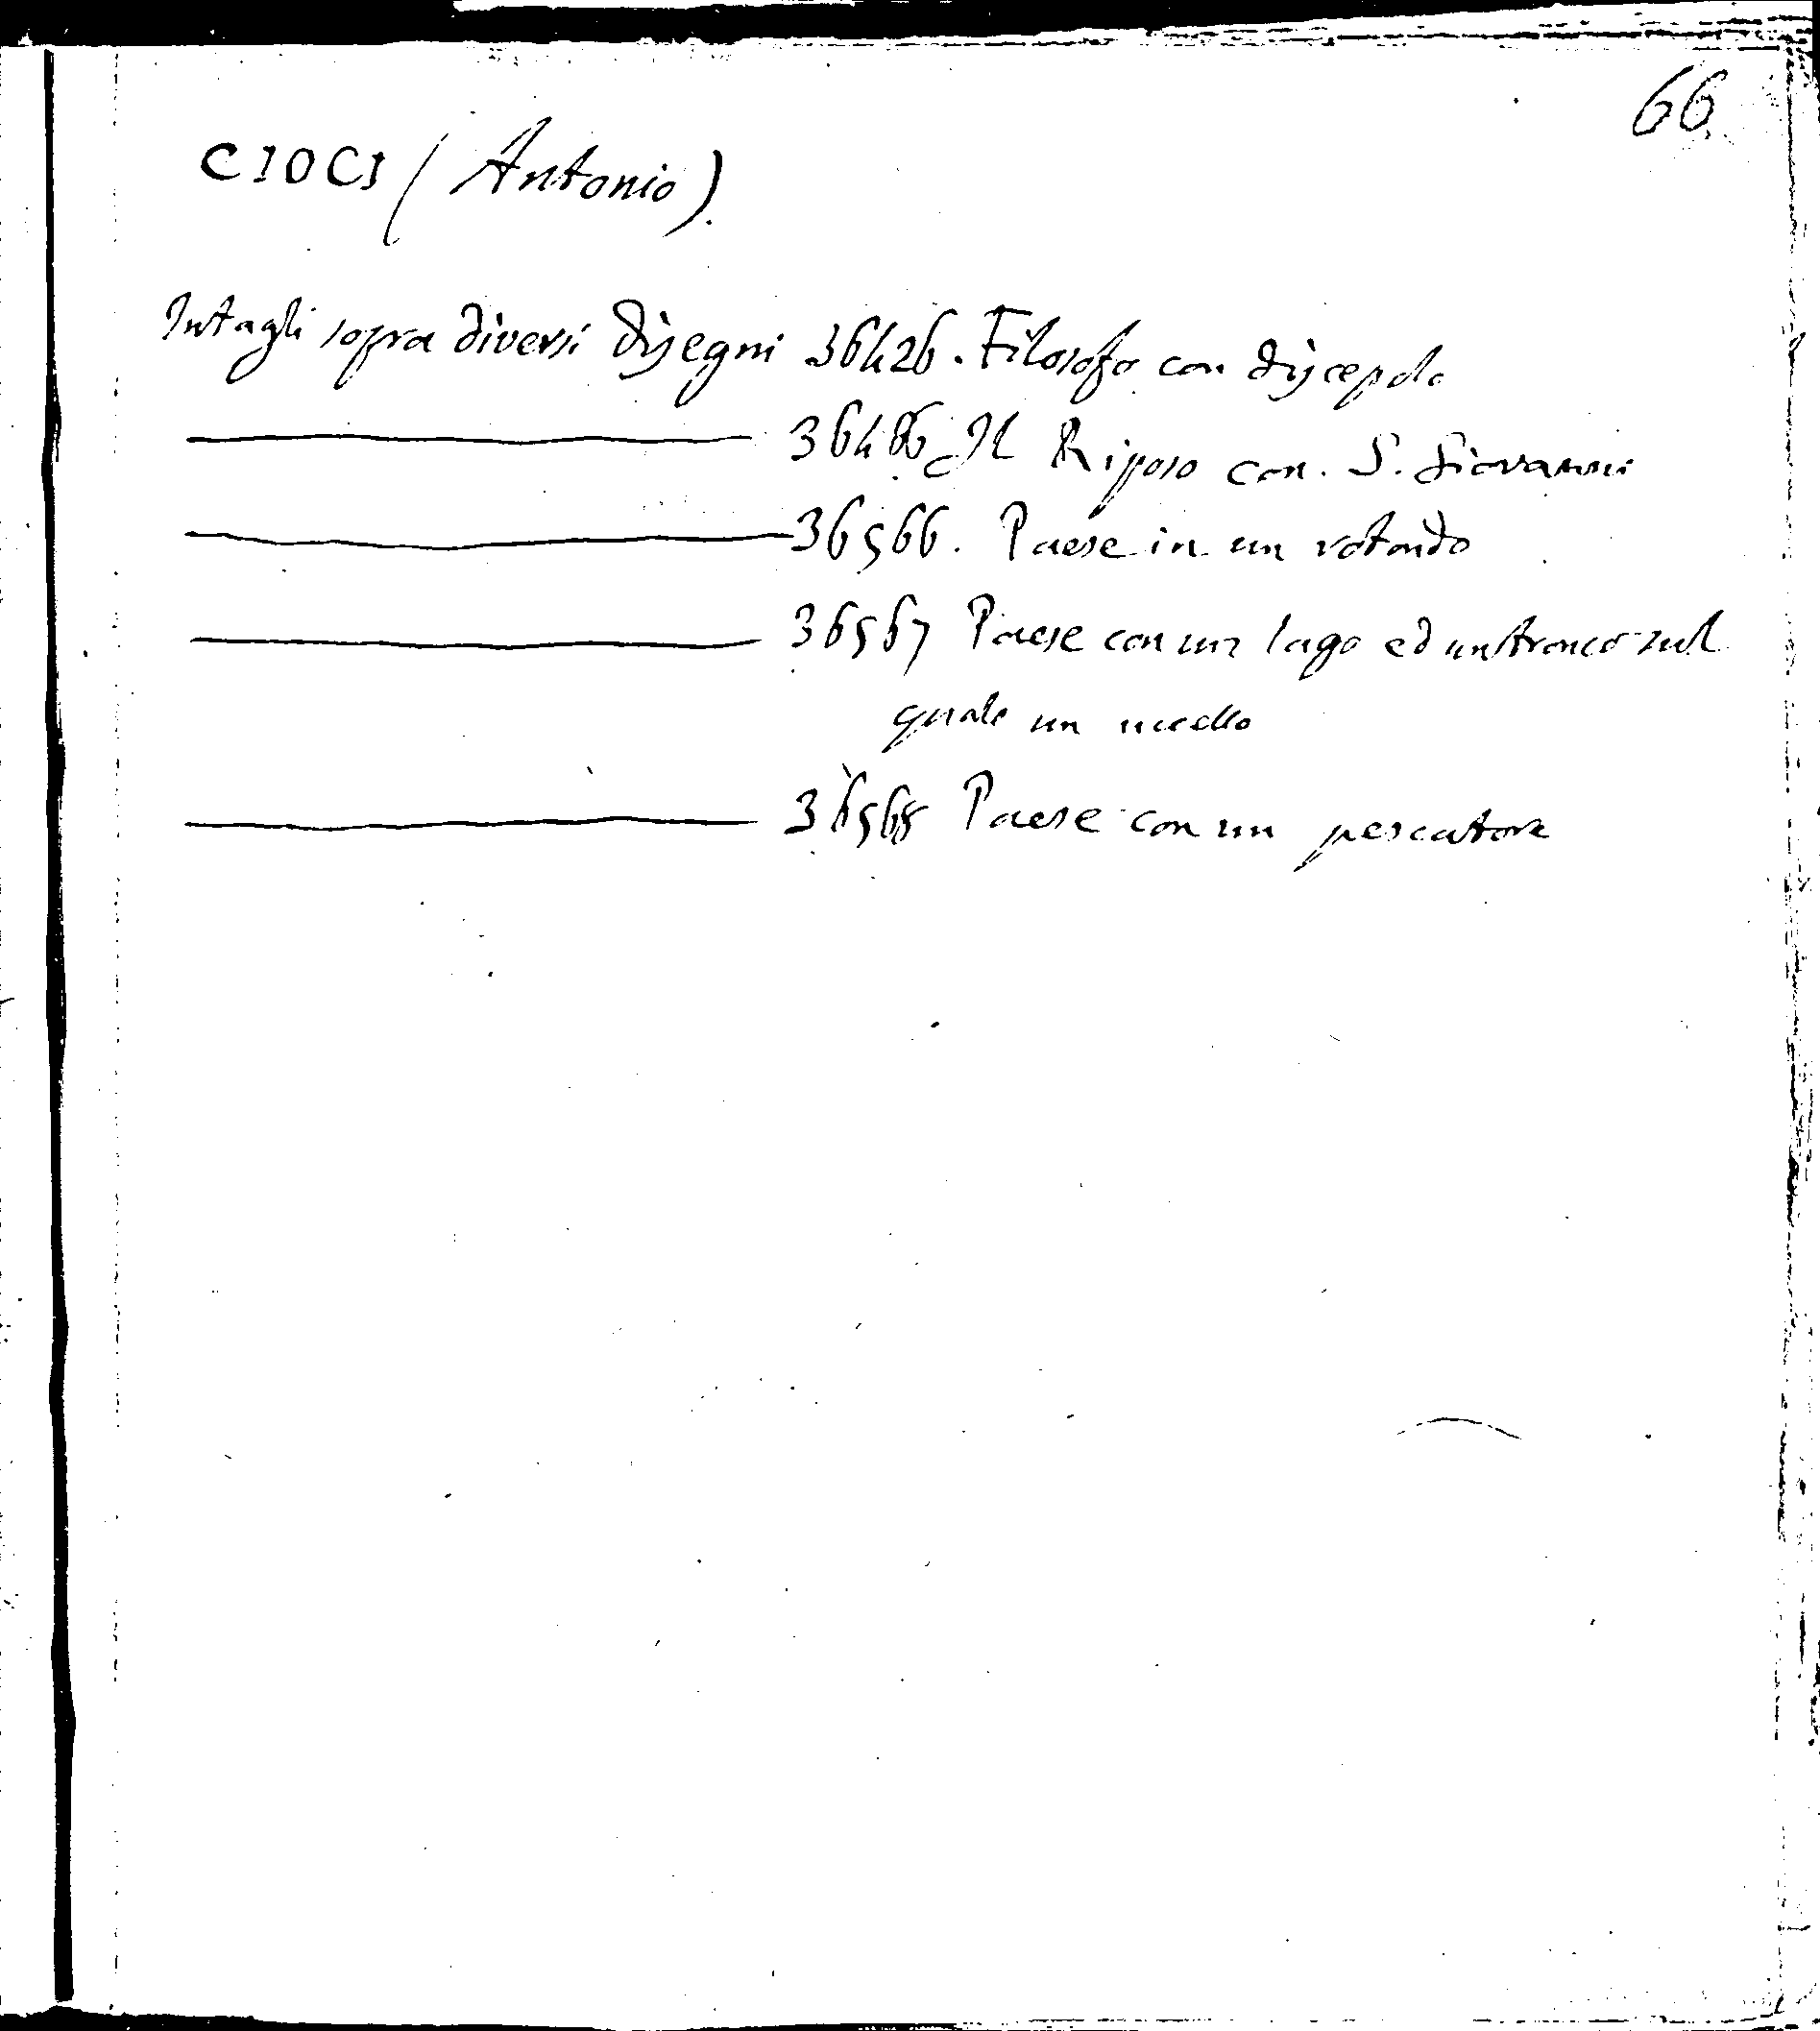 66
CIOCI (Antonio).
Intagli sopra diversi disegni 36426. Filosofo con discepolo
36486 Il Riposo con. S. Giovanni
36566. Paese in un rotondo
36567 Paese con un lago ed un tronco sul
quale un uccello
36568 Paese con un pescatore